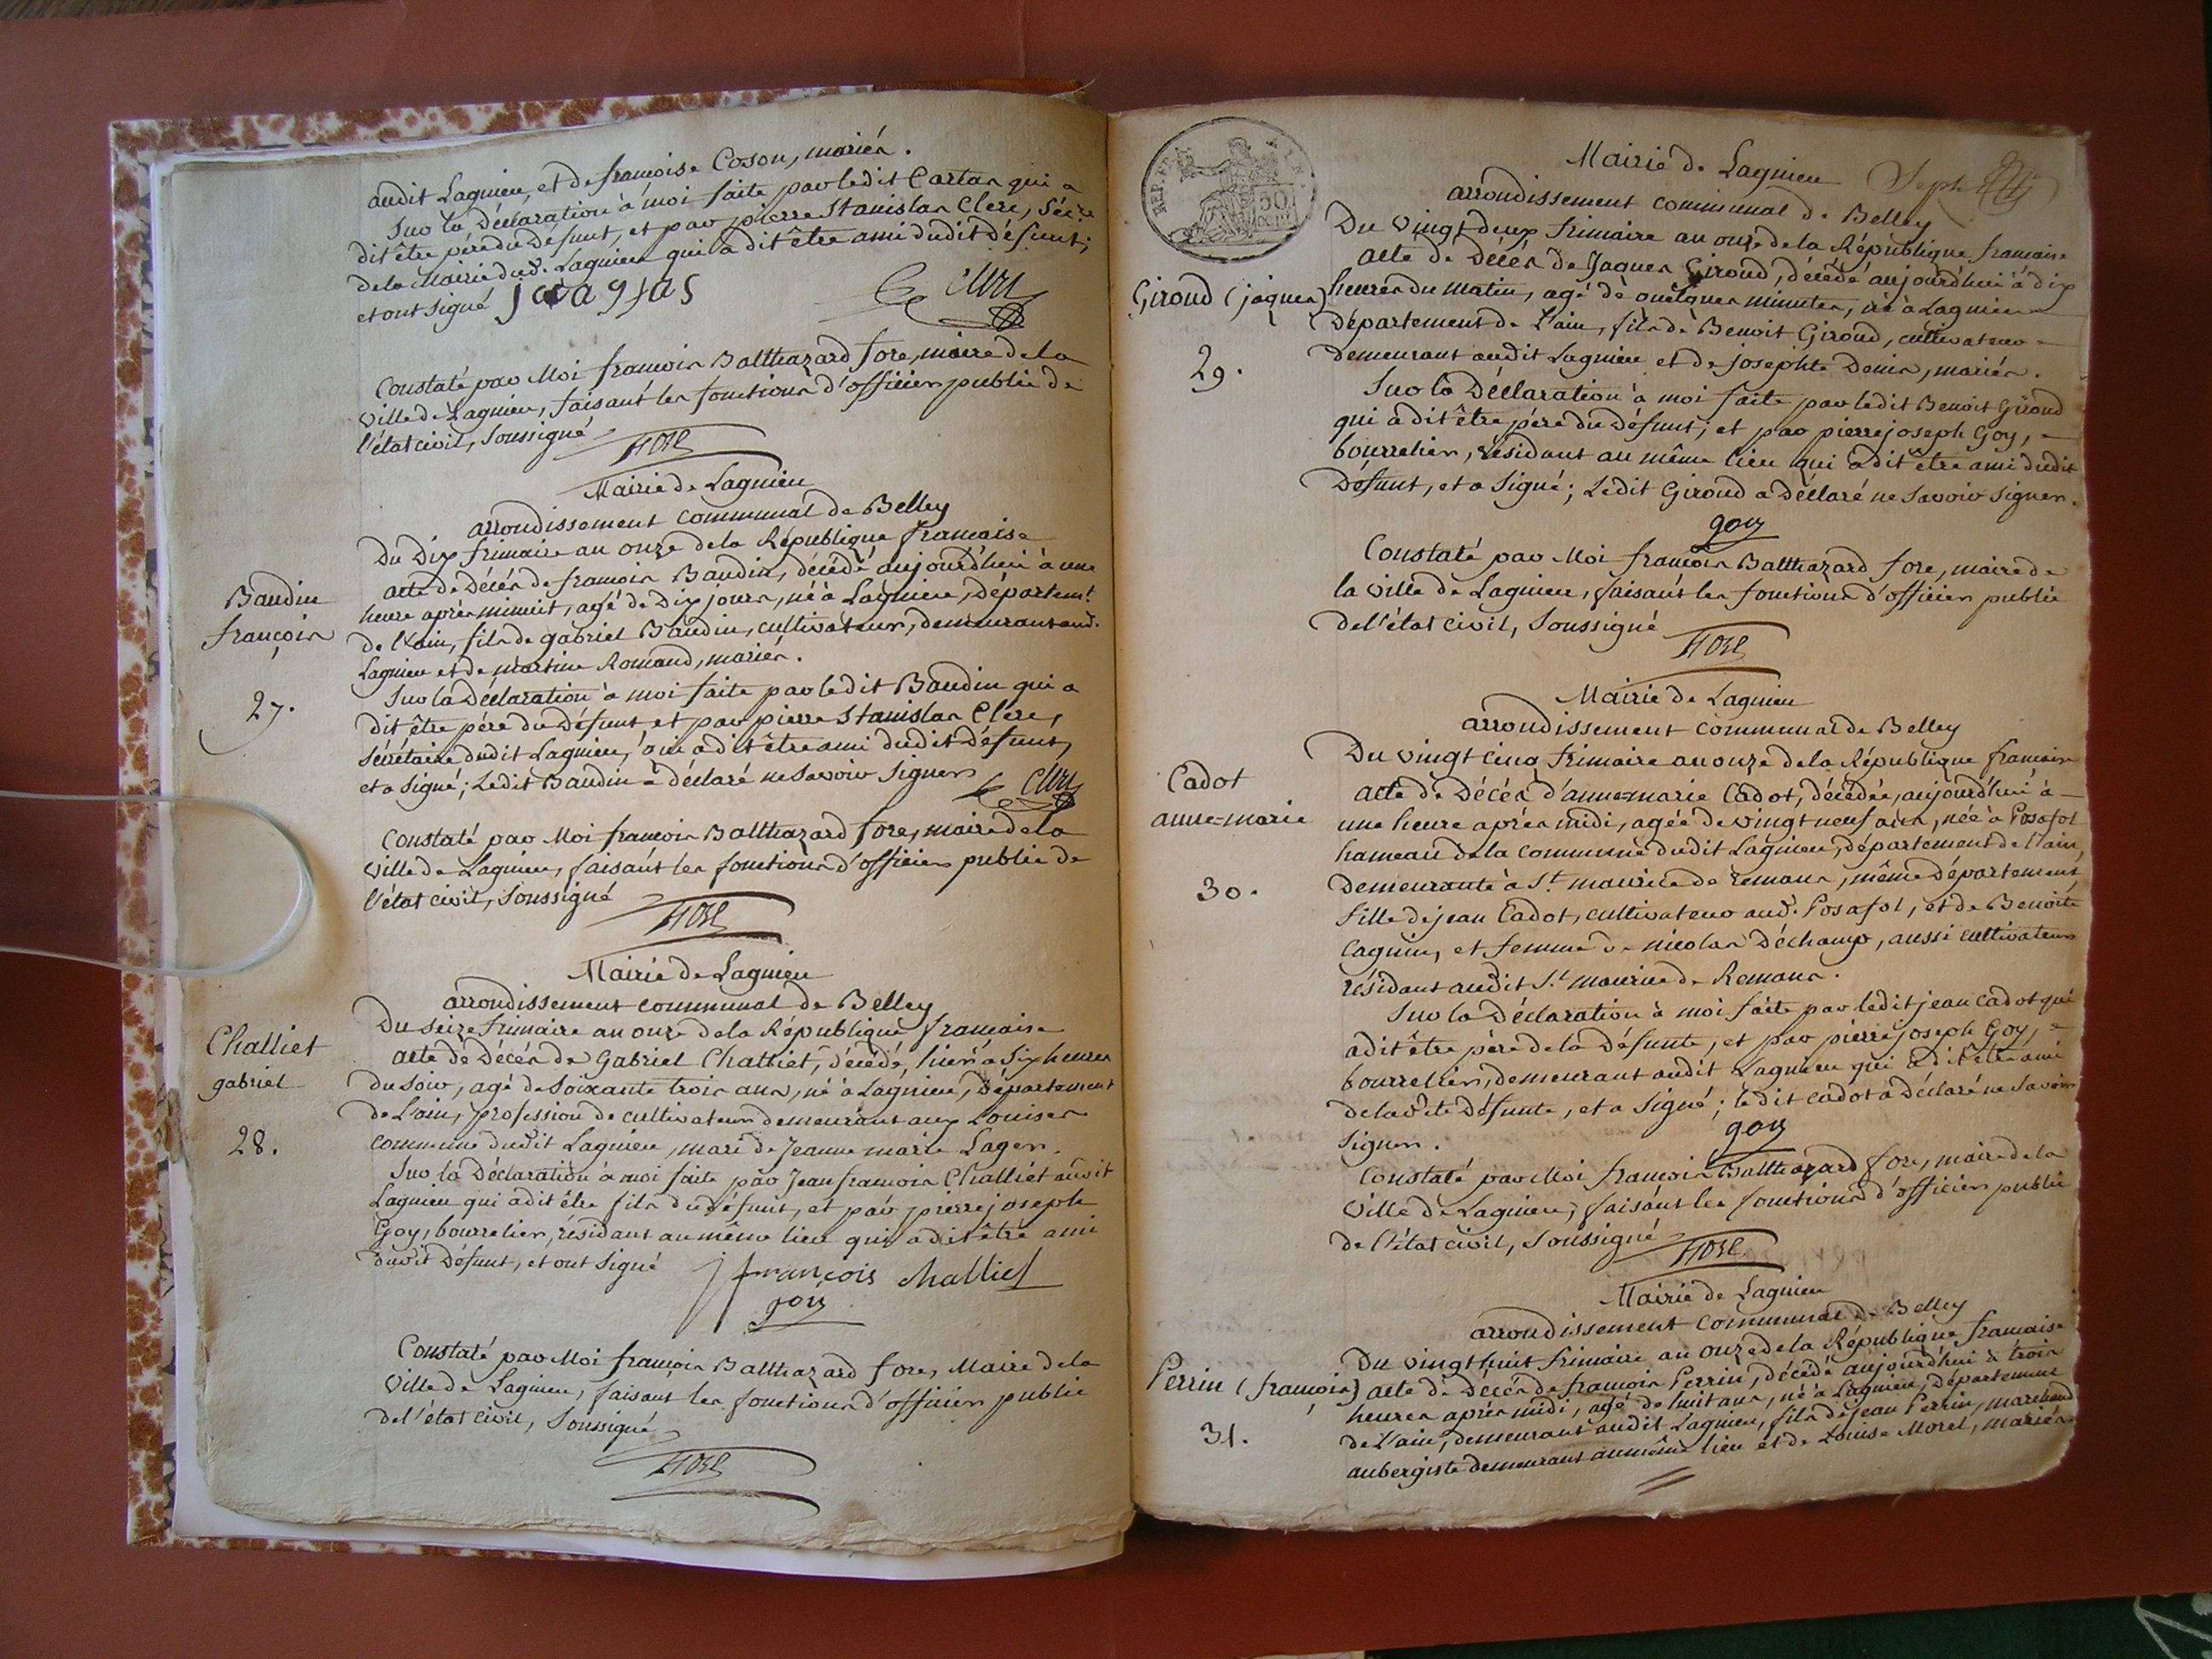 audit Lagnieu, et de françoise Coson, mariés.
Sur la Déclaration à moi faite par ledit Cartas qui a
dit être pére du Défunt, et par pierre Stanislas Clerc, Sécre
de la Mairie dud. Lagnieu qui a dit être ami dudit défunt;
et ont Signé
Constaté par Moi françois Balthazard fore, maire de la
ville de Lagnieu, faisant les fonctions d'officier public de
l'état civil, Soussigné
fore
Mairie de Lagnieu
arrondissement communal de Belley
Du Dix frimaire an onze de la République française
Baudin
françois
27.
acte de Décés de françois Baudin, décédé aujourd'hui à une
heure après minuit, agé de Dix jours, né à Lagnieu, Départemt.
de l'ain, fils de gabriel Baudin, cultivateur, demeurant aud.
Lagnieu et de martine Romand, mariés.
Sur la Déclaration à moi faite par ledit Baudin qui a
dit être pére du Défunt, et par pierre Stanislas Clerc,
sécrétaire dudit Lagnieu, qui a dit être ami dudit défunt,
et a signé; Ledit Baudin a déclaré ne Savoir Signer
Constaté par Moi françois Balthazard fore, maire de la
ville de Lagnieu, faisant les fonctions d'officier public de
l'état civil, Soussigné
fore
Mairie de Lagnieu
arrondissement communal de Belley
Du Seize frimaire an onze de la République française
Challiet
gabriel
28.
acte de Décés de Gabriel Challiet, décédé, hier à Six heures
du Soir, agé de Soixante trois ans, né à Lagnieu, Département
de L'ain, profession de cultivateur demeurant aux Louises
commune dudit Lagnieu, mari de Jeanne marie Lager.
Sur la Déclaration à moi faite par Jean françois Challiet audit
Lagnieu qui a dit être fils du défunt, et par pierre joseph
Goy, bourrelier, résidant au même lieu qui a dit être ami
dudit Défunt, et ont Signé
j françois challiet
goy
Constaté par Moi françois Balthazard fore, Maire de la
Ville de Lagnieu, faisant les fonctions d'officier public
de l'état civil, Soussigné
fore
REP. FRA.
50
Mairie de Lagnieu
arrondissement communal de Belley
Du vingt deux frimaire an onze de la République française
Giroud (jaques)
29.
acte de Décés de Jaques Giroud, décédé aujourd'hui à dix
heures du matin, agé de quelques minutes, né à Lagnieu
Département de L'ain, fils de Benoit Giroud, cultivateur
demeurant audit Lagnieu et de josephte Denis, mariés.
Sur la Déclaration à moi faite par ledit Benoit Giroud
qui a dit être pére du Défunt; et par pierre joseph Goy,
bourrelier, résidant au même lieu qui a dit être ami dudit
Défunt, et a Signé; Ledit Giroud a Déclaré ne Savoir Signer.
goy
Constaté par Moi françois Balthazard fore, maire de
la ville de Lagnieu, faisant les fonctions d'officier public
de l'état civil, Soussigné
fore
Mairie de Lagnieu
arrondissement communal de Belley
Du vingt cinq frimaire an onze de la République française
Cadot
anne-marie
30.
acte de Décés d'anne-marie Cadot, décédée, aujourd'hui à
une heure après midi, agée de vingt neuf ans, née à Posafol
hameau de la commune dudit Lagnieu, département de l'ain,
demeurante à St. maurice de Remans, même Département,
fille de jean Cadot, cultivateur aud. Posafol, et de Benoite
Cagnin, et femme de nicolas Déchamp, aussi cultivateur
résidant audit St. maurice de Remans.
Sur la Déclaration à moi faite par ledit jean Cadot qui
a dit être pére de la Défunte, et par pierre joseph Goy,
bourrelier, demeurant audit Lagnieu qui a dit être ami
de la dite Défunte, et a Signé; ledit cadot a Déclaré ne Savoir
Signer.
goy
Constaté par Moi françois Balthazard fore, maire de la
Ville de Lagnieu, faisant les fonctions d'officier public
de l'état civil, Soussigné
fore
Mairie de Lagnieu
arrondissement communal de Belley
Du vingt huit frimaire an onze de la République française
Perrin (françois)
31.
acte de Décés de françois Perrin, décédé aujourd'hui à trois
heures après midi, agé de huit ans, né à Lagnieu, Département
de L'ain, demeurant audit Lagnieu, fils de jean Perrin, marchand
aubergiste demeurant au même lieu et de Louise Morel, mariés